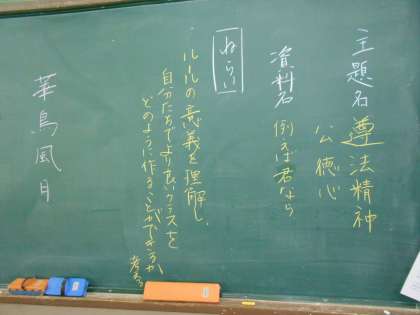 主題名 遵法精神
公徳心
資料名 例えば君なら
ねらい
・ルールの意義を理解し、
自分たちでよりよいクラスを
どのように作ることができるか
考える
華鳥風月